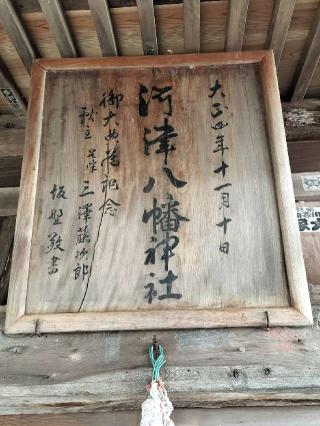 大正四年十一月十日
河津八幡神社
御大典記念
献主 三澤藤次郎
坂野敬書